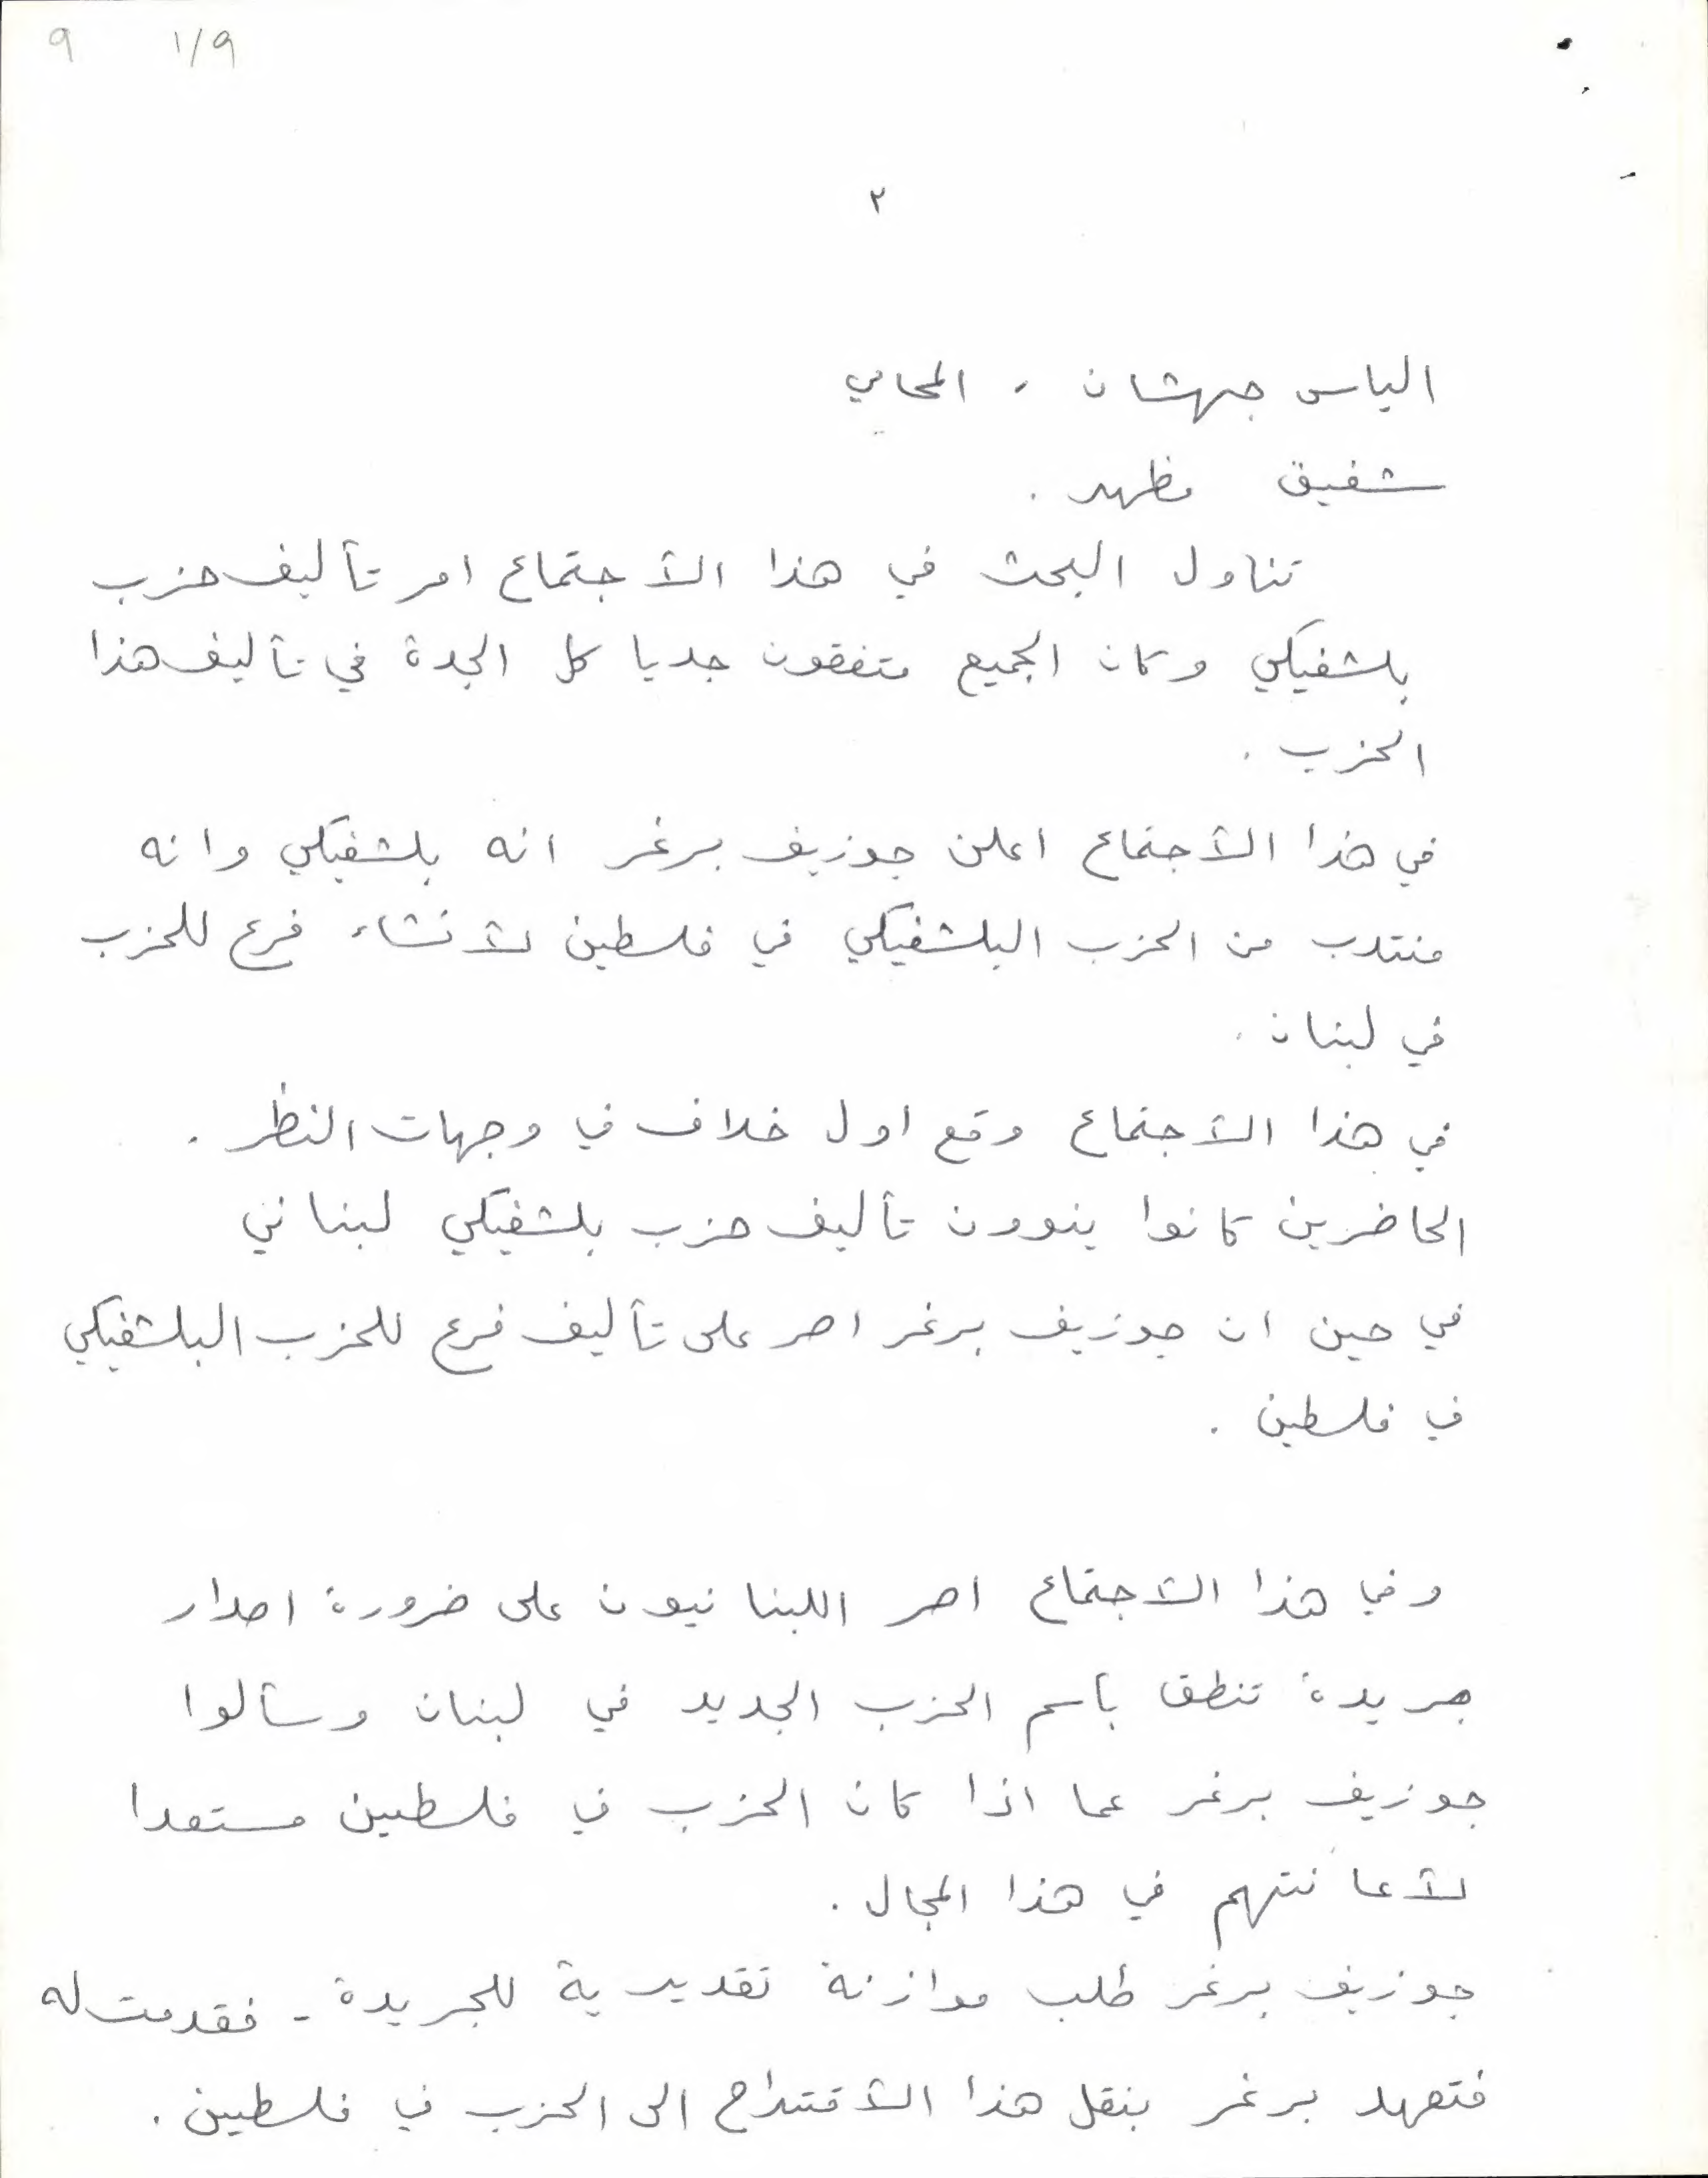 ٩ ١/٩
٢
الياس جهشان ، المحامي
شفيق مظهر .
تناول البحث في هذا الأجتماع امر تأليف حزب
بلشفيكي وكان الجميع متفقون جديا كل الجدة في تأليف هذا
الحزب .
في هذا الأجتماع اعلن جوزيف برغر انه بلشفيكي وانه
منتدب من الحزب البلشفيكي في فلسطين لأنشاء فرع للحزب
في لبنان .
في هذا الأجتماع وقع اول خلاف في وجهات النظر .
الحاضرين كانوا ينوون تأليف حزب بلشفيكي لبناني
في حين ان جوزيف برغر اصر على تأليف فرع للحزب البلشفيكي
في فلسطين .
وفي هذا الأجتماع اصر اللبنانيون على ضرورة اصدار
جريدة تنطق بأسم الحزب الجديد في لبنان وسألوا
جوزيف برغر عما اذا كان الحزب في فلسطين مستعدا
لأعانتهم في هذا المجال .
جوزيف برغر طلب موازنة تقديرية للجريدة - فقدمت له
فتعهد برغر بنقل هذا الأقتراح الى الحزب في فلسطين .